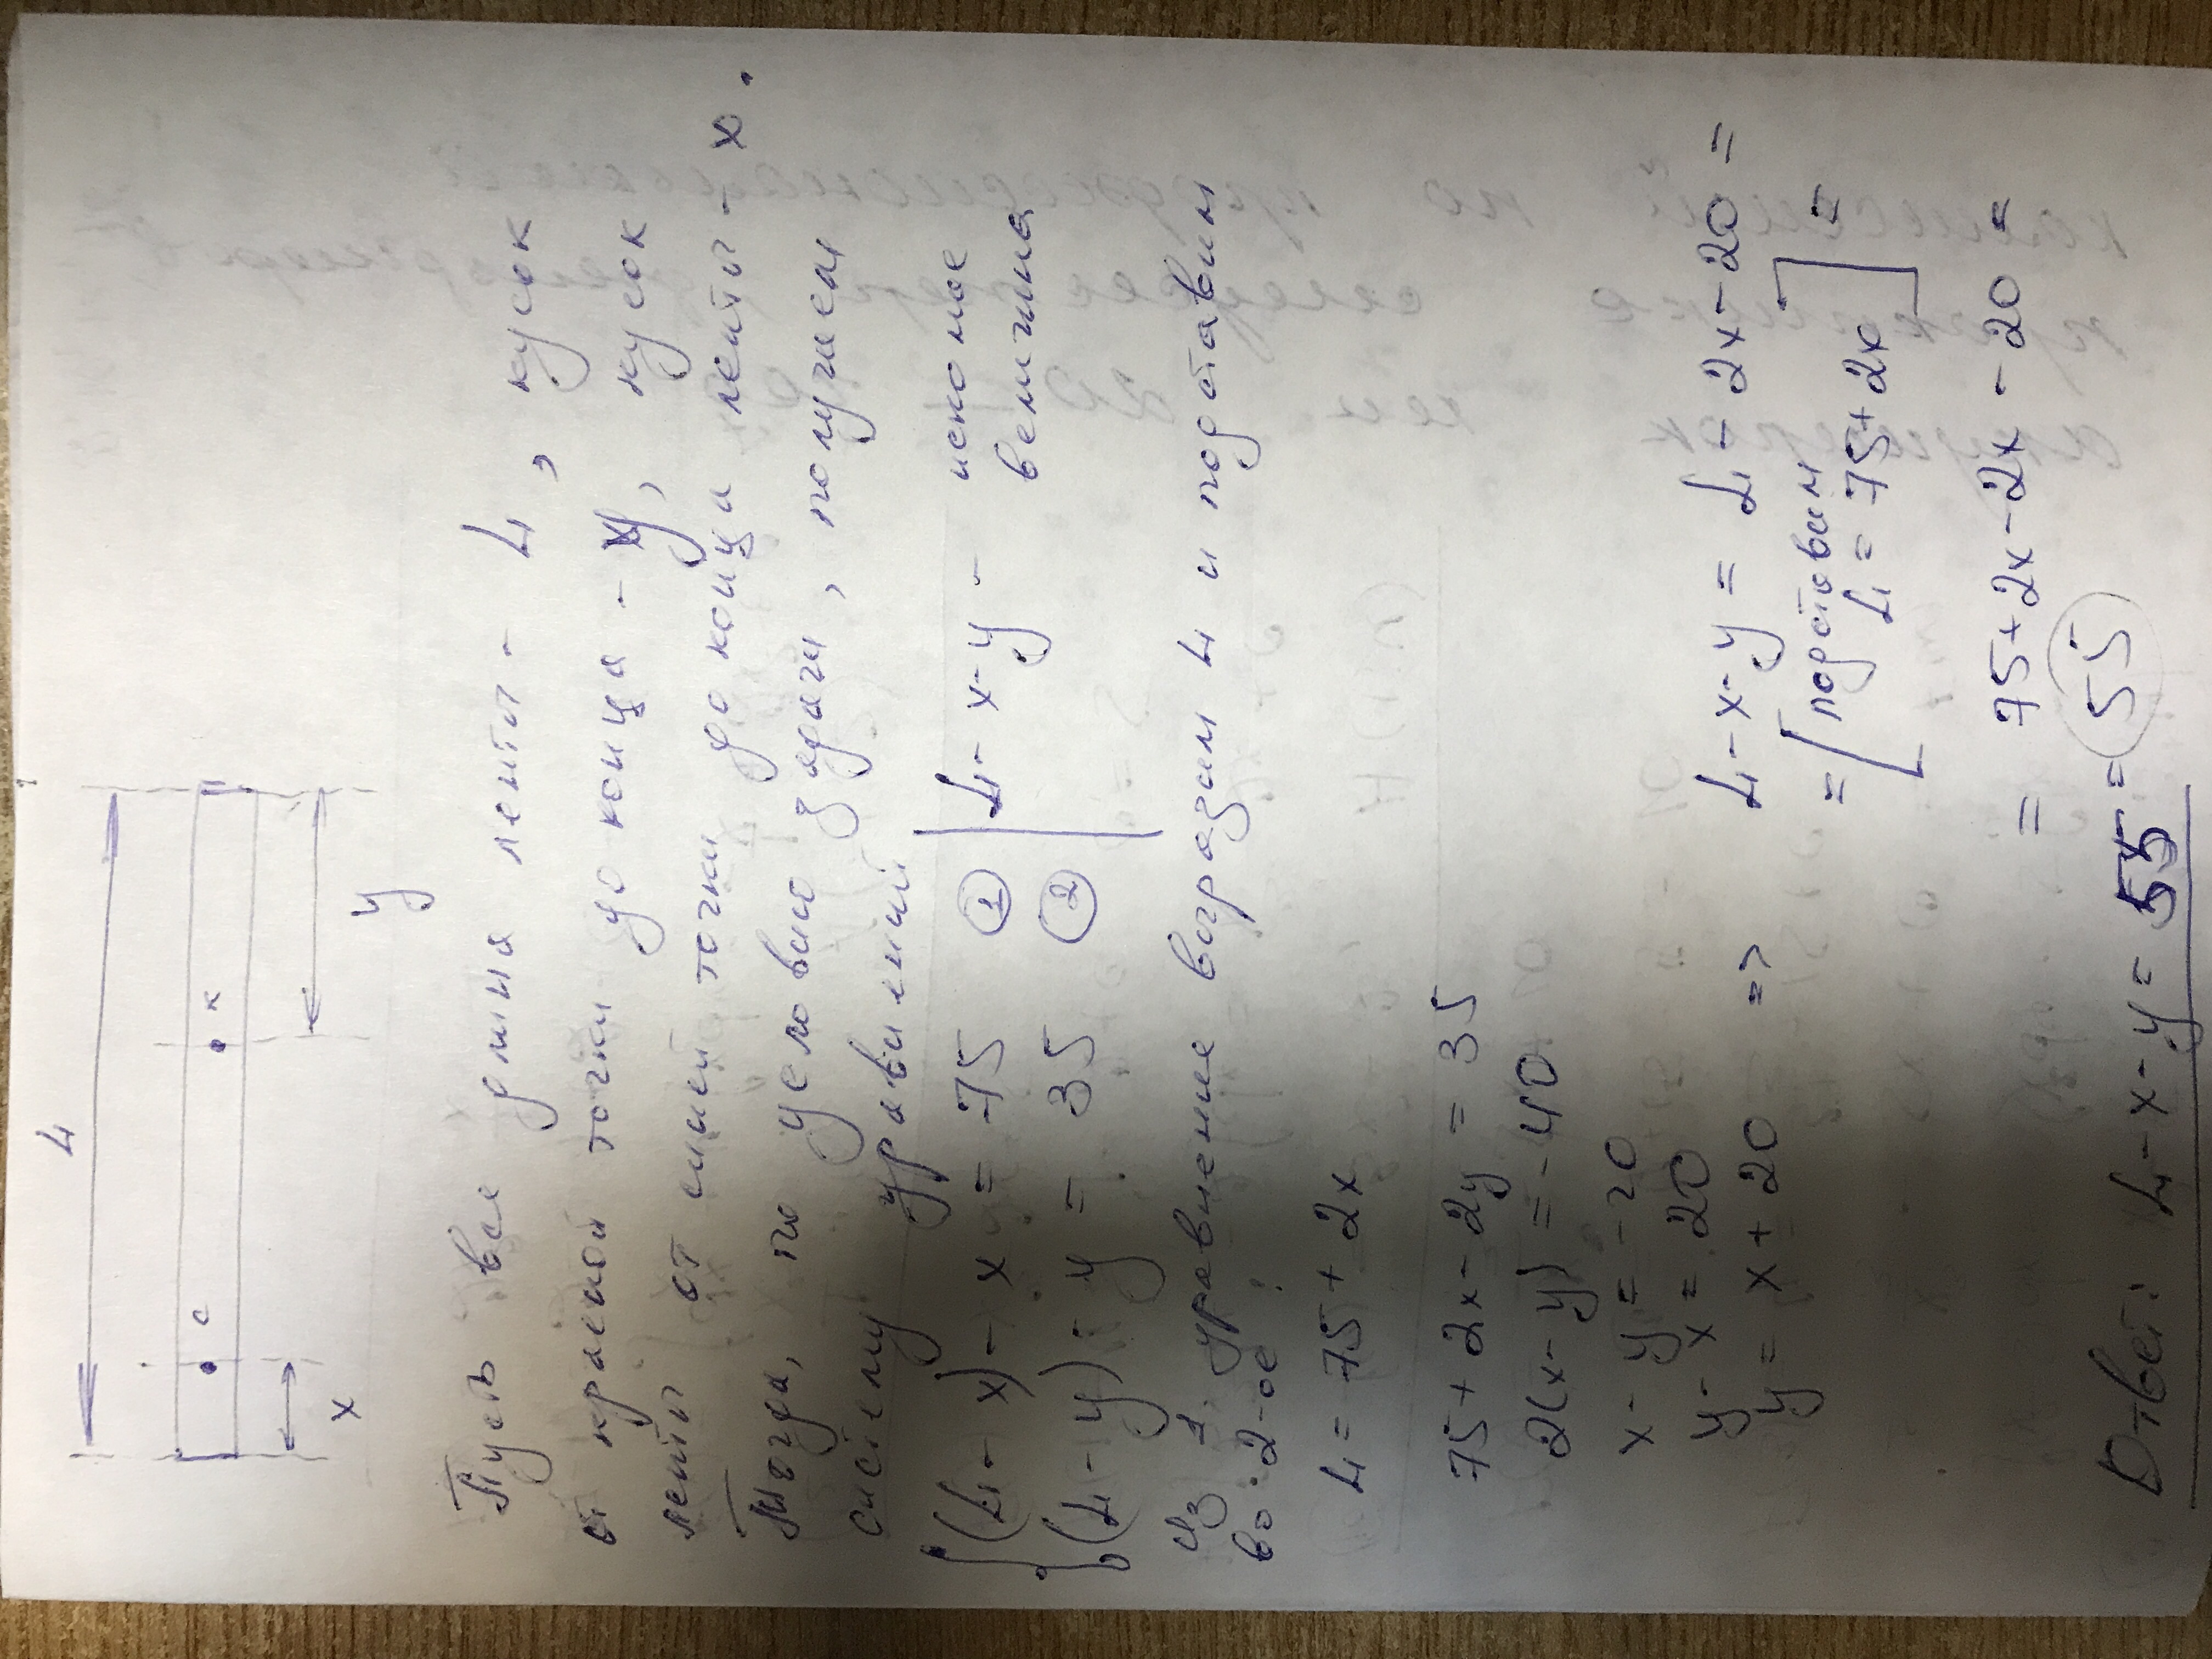 L
с к
x y
Пусть вся длина ленты - L, кусок
от красной точки до конца - y, кусок
ленты от синей точки до конца ленты - x.
Тогда, по условию задачи, получаем
систему уравнений
(L - x) - x = 75 ① L - x - y - искомая
(L - y) - y = 35 ② величина
Из 1 уравнение выразим L и подставим
во 2-ое:
L = 75 + 2x
75 + 2x - 2y = 35
2(x - y) = -40
x - y = -20
y - x = 20
y = x + 20 => L - x - y = L - 2x - 20 =
= [подставим
L = 75 + 2x] =
= 75 + 2x - 2x - 20 =
= 55
Ответ: L - x - y = 55